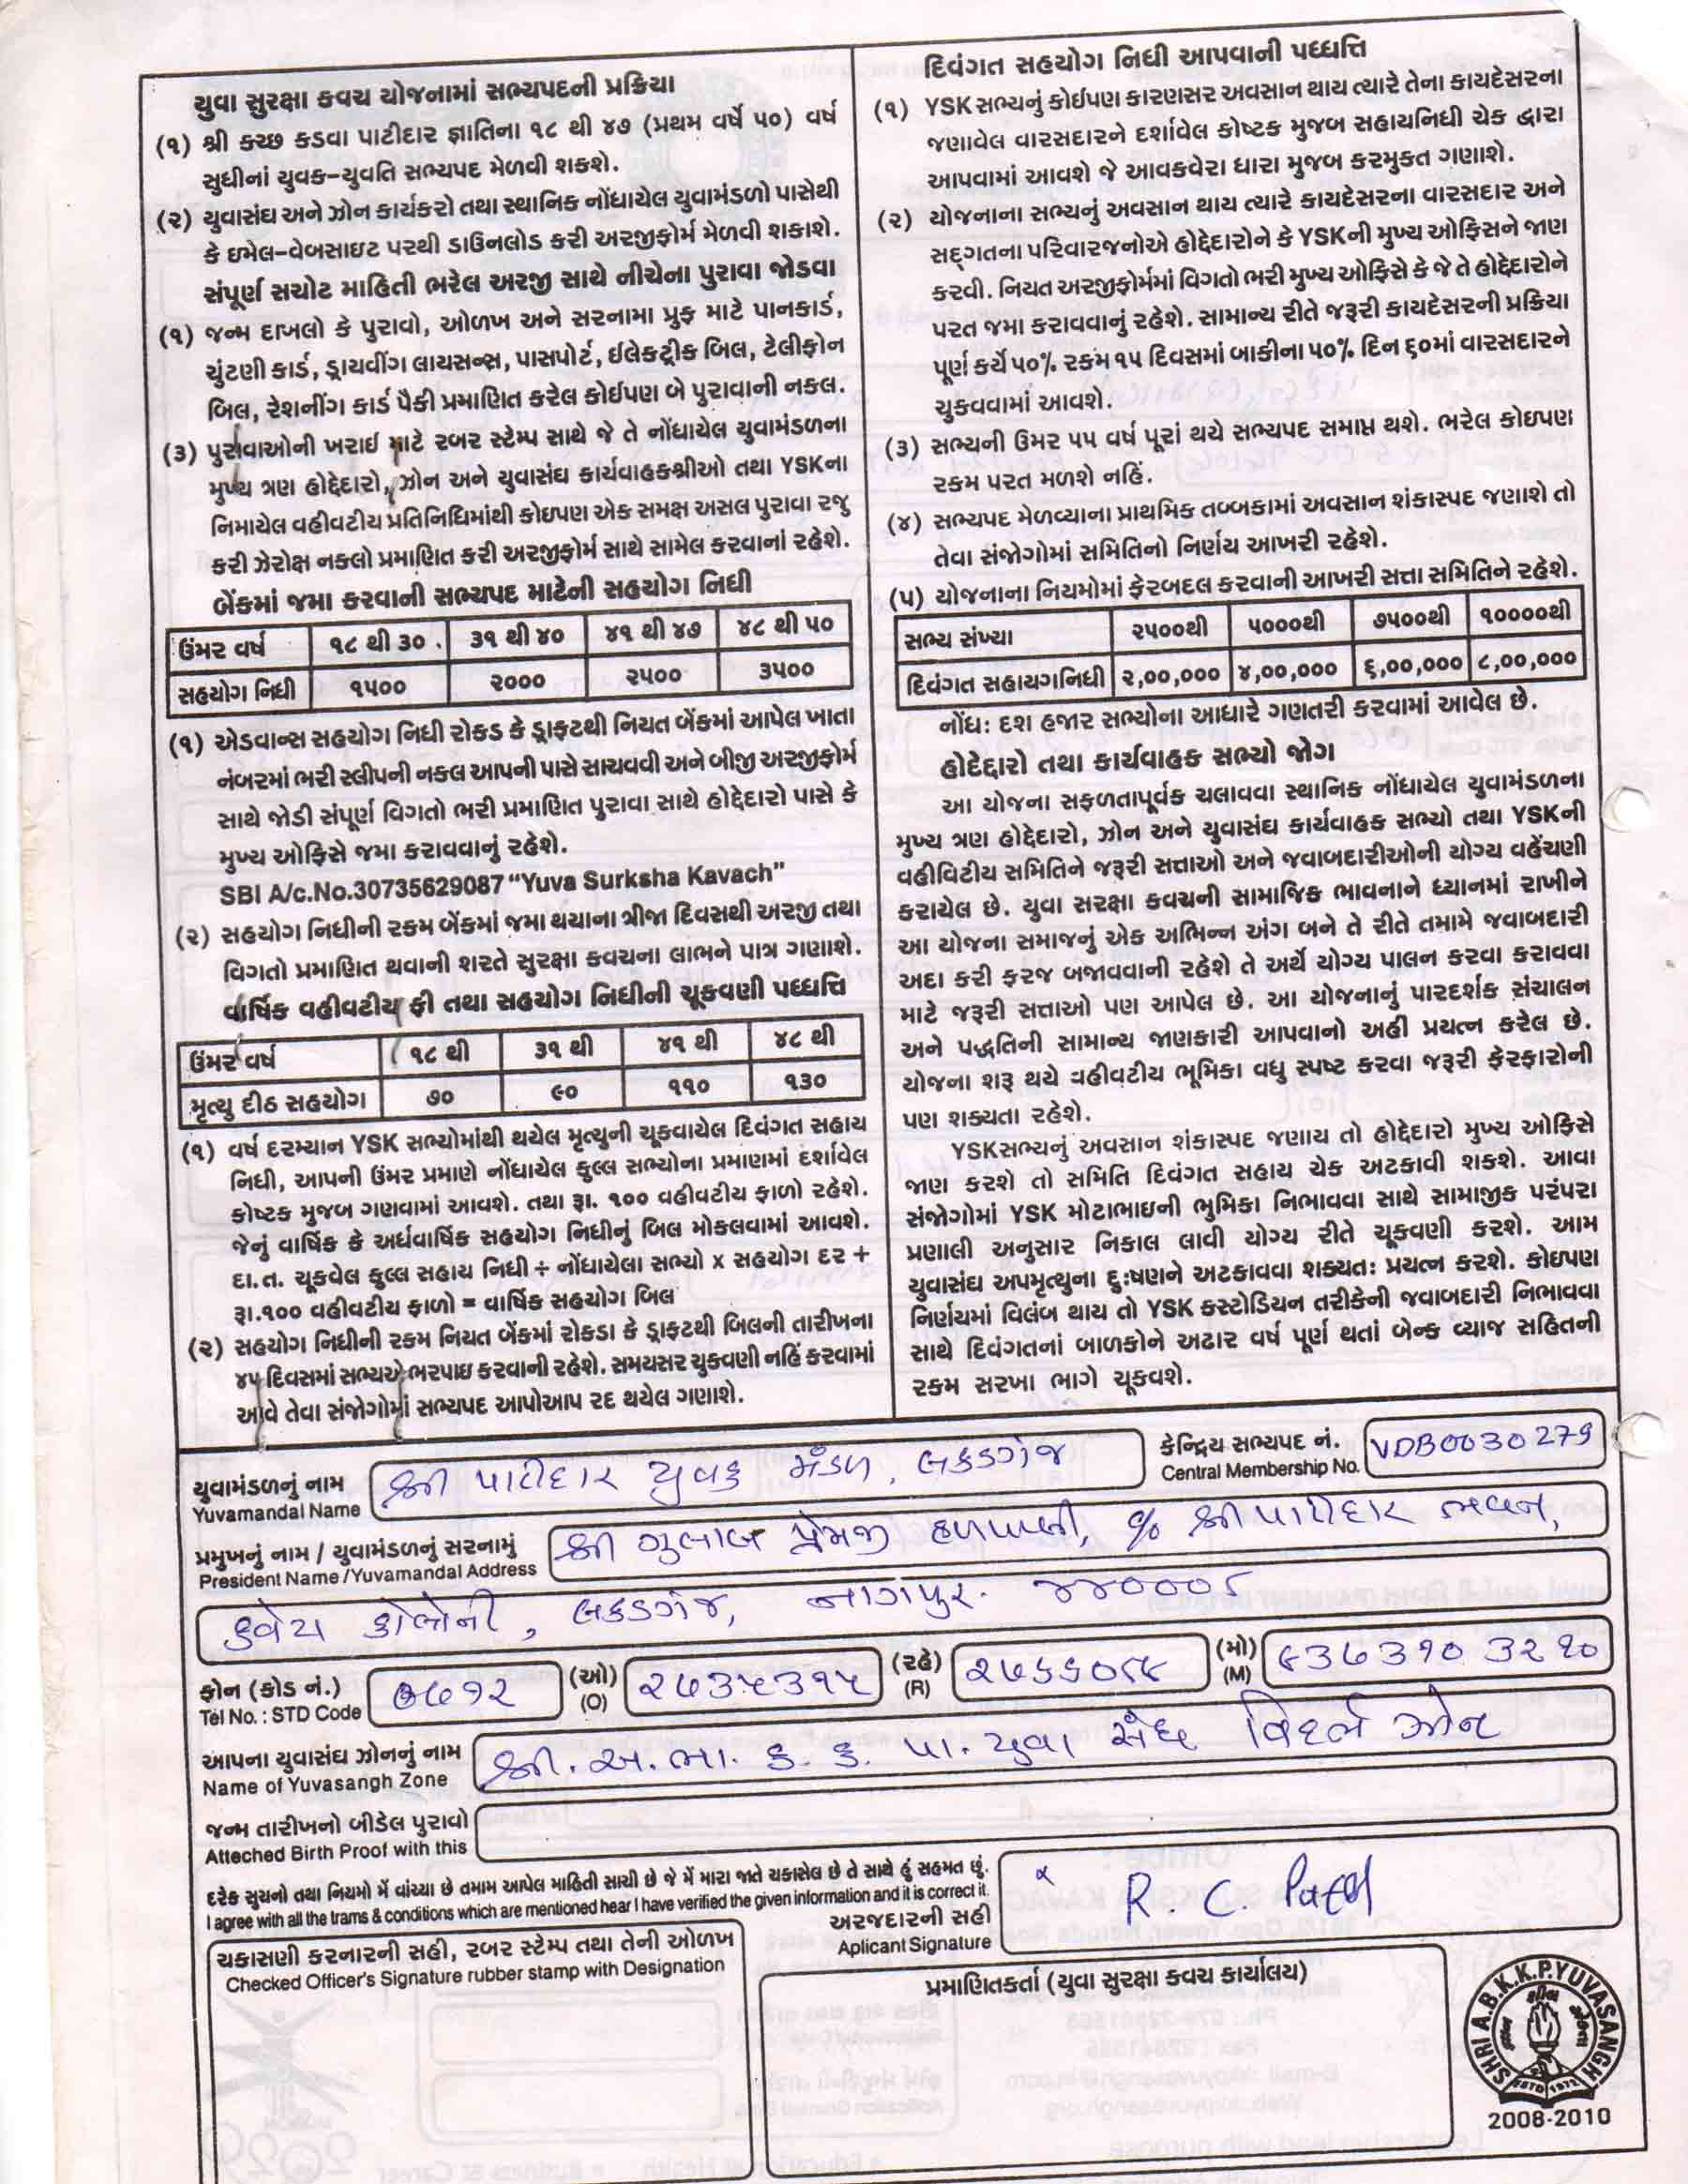 યુવા સુરક્ષા કવચ યોજનામાં સભ્યપદની પ્રક્રિયા
(૧) શ્રી કચ્છ કડવા પાટીદાર જ્ઞાતિના ૧૮ થી ૪૭ (પ્રથમ વર્ષે ૫૦) વર્ષ
સુધીનાં યુવક-યુવતિ સભ્યપદ મેળવી શકશે.
(૨) યુવાસંઘ અને ઝોન કાર્યકરો તથા સ્થાનિક નોંધાયેલ યુવામંડળો પાસેથી
કે ઇમેલ-વેબસાઇટ પરથી ડાઉનલોડ કરી અરજીફોર્મ મેળવી શકાશે.
સંપૂર્ણ સચોટ માહિતી ભરેલ અરજી સાથે નીચેના પુરાવા જોડવા
(૧) જન્મ દાખલો કે પુરાવો, ઓળખ અને સરનામા પ્રુફ માટે પાનકાર્ડ,
ચુંટણી કાર્ડ, ડ્રાયવીંગ લાયસન્સ, પાસપોર્ટ, ઈલેક્ટ્રીક બિલ, ટેલીફોન
બિલ, રેશનીંગ કાર્ડ પૈકી પ્રમાણિત કરેલ કોઈપણ બે પુરાવાની નકલ.
(૩) પુરાવાઓની ખરાઈ માટે રબર સ્ટેમ્પ સાથે જે તે નોંધાયેલ યુવામંડળના
મુખ્ય ત્રણ હોદ્દેદારો, ઝોન અને યુવાસંઘ કાર્યવાહકશ્રીઓ તથા YSKના
નિમાયેલ વહીવટીય પ્રતિનિધિમાંથી કોઇપણ એક સમક્ષ અસલ પુરાવા રજુ
કરી ઝેરોક્ષ નકલો પ્રમાણિત કરી અરજીફોર્મ સાથે સામેલ કરવાનાં રહેશે.
બેંકમાં જમા કરવાની સભ્યપદ માટેની સહયોગ નિધી
ઉંમર વર્ષ ૧૮ થી ૩૦ ૩૧ થી ૪૦ ૪૧ થી ૪૭ ૪૮ થી ૫૦
સહયોગ નિધી ૧૫૦૦ ૨૦૦૦ ૨૫૦૦ ૩૫૦૦
(૧) એડવાન્સ સહયોગ નિધી રોકડ કે ડ્રાફ્ટથી નિયત બેંકમાં આપેલ ખાતા
નંબરમાં ભરી સ્લીપની નકલ આપની પાસે સાચવવી અને બીજી અરજીફોર્મ
સાથે જોડી સંપૂર્ણ વિગતો ભરી પ્રમાણિત પુરાવા સાથે હોદ્દેદારો પાસે કે
મુખ્ય ઓફિસે જમા કરાવવાનું રહેશે.
SBI A/c.No.30735629087 “Yuva Surksha Kavach”
(૨) સહયોગ નિધીની રકમ બેંકમાં જમા થયાના ત્રીજા દિવસથી અરજી તથા
વિગતો પ્રમાણિત થવાની શરતે સુરક્ષા કવચના લાભને પાત્ર ગણાશે.
વાર્ષિક વહીવટીય ફી તથા સહયોગ નિધીની ચૂકવણી પધ્ધતિ
ઉંમર વર્ષ ૧૮ થી ૩૧ થી ૪૧ થી ૪૮ થી
મૃત્યુ દીઠ સહયોગ ૭૦ ૯૦ ૧૧૦ ૧૩૦
(૧) વર્ષ દરમ્યાન YSK સભ્યોમાંથી થયેલ મૃત્યુની ચૂકવાયેલ દિવંગત સહાય
નિધી, આપની ઉંમર પ્રમાણે નોંધાયેલ કુલ્લ સભ્યોના પ્રમાણમાં દર્શાવેલ
કોષ્ટક મુજબ ગણવામાં આવશે. તથા રૂા. ૧૦૦ વહીવટીય ફાળો રહેશે.
જેનું વાર્ષિક કે અર્ધવાર્ષિક સહયોગ નિધીનું બિલ મોકલવામાં આવશે.
દા.ત. ચૂકવેલ કુલ્લ સહાય નિધી ÷ નોંધાયેલા સભ્યો x સહયોગ દર +
રૂા.૧૦૦ વહીવટીય ફાળો = વાર્ષિક સહયોગ બિલ
(૨) સહયોગ નિધીની રકમ નિયત બેંકમાં રોકડા કે ડ્રાફ્ટથી બિલની તારીખના
૪૫ દિવસમાં સભ્યએ ભરપાઇ કરવાની રહેશે. સમયસર ચુકવણી નહિં કરવામાં
આવે તેવા સંજોગોમાં સભ્યપદ આપોઆપ રદ થયેલ ગણાશે.
દિવંગત સહયોગ નિધી આપવાની પધ્ધત્તિ
(૧) YSK સભ્યનું કોઈપણ કારણસર અવસાન થાય ત્યારે તેના કાયદેસરના
જણાવેલ વારસદારને દર્શાવેલ કોષ્ટક મુજબ સહાયનિધી ચેક દ્વારા
આપવામાં આવશે જે આવકવેરા ધારા મુજબ કરમુકત ગણાશે.
(૨) યોજનાના સભ્યનું અવસાન થાય ત્યારે કાયદેસરના વારસદાર અને
સદ્ગતના પરિવારજનોએ હોદ્દેદારોને કે YSKની મુખ્ય ઓફિસને જાણ
કરવી. નિયત અરજીફોર્મમાં વિગતો ભરી મુખ્ય ઓફિસે કે જે તે હોદ્દેદારોને
પરત જમા કરાવવાનું રહેશે. સામાન્ય રીતે જરૂરી કાયદેસરની પ્રક્રિયા
પૂર્ણ કર્યે ૫૦% રકમ ૧૫ દિવસમાં બાકીના ૫૦% દિન ૬૦માં વારસદારને
ચુકવવામાં આવશે.
(૩) સભ્યની ઉમર ૫૫ વર્ષ પૂરાં થયે સભ્યપદ સમાપ્ત થશે. ભરેલ કોઇપણ
રકમ પરત મળશે નહિં.
(૪) સભ્યપદ મેળવ્યાના પ્રાથમિક તબ્બકામાં અવસાન શંકાસ્પદ જણાશે તો
તેવા સંજોગોમાં સમિતિનો નિર્ણય આખરી રહેશે.
(૫) યોજનાના નિયમોમાં ફેરબદલ કરવાની આખરી સત્તા સમિતિને રહેશે.
સભ્ય સંખ્યા ૨૫૦૦થી ૫૦૦૦થી ૭૫૦૦થી ૧૦૦૦૦થી
દિવંગત સહાયગનિધી ૨,૦૦,૦૦૦ ૪,૦૦,૦૦૦ ૬,૦૦,૦૦૦ ૮,૦૦,૦૦૦
નોંધઃ દશ હજાર સભ્યોના આધારે ગણતરી કરવામાં આવેલ છે.
હોદેદ્દારો તથા કાર્યવાહક સભ્યો જોગ
આ યોજના સફળતાપૂર્વક ચલાવવા સ્થાનિક નોંધાયેલ યુવામંડળના
મુખ્ય ત્રણ હોદ્દેદારો, ઝોન અને યુવાસંઘ કાર્યવાહક સભ્યો તથા YSKની
વહીવિટીય સમિતિને જરૂરી સત્તાઓ અને જવાબદારીઓની યોગ્ય વહેંચણી
કરાયેલ છે. યુવા સરક્ષા કવચની સામાજિક ભાવનાને ધ્યાનમાં રાખીને
આ યોજના સમાજનું એક અભિન્ન અંગ બને તે રીતે તમામે જવાબદારી
અદા કરી ફરજ બજાવવાની રહેશે તે અર્થે યોગ્ય પાલન કરવા કરાવવા
માટે જરૂરી સત્તાઓ પણ આપેલ છે. આ યોજનાનું પારદર્શક સંચાલન
અને પદ્ધતિની સામાન્ય જાણકારી આપવાનો અહીં પ્રયત્ન કરેલ છે.
યોજના શરૂ થયે વહીવટીય ભૂમિકા વધુ સ્પષ્ટ કરવા જરૂરી ફેરફારોની
પણ શક્યતા રહેશે.
YSKસભ્યનું અવસાન શંકાસ્પદ જણાય તો હોદ્દેદારો મુખ્ય ઓફિસે
જાણ કરશે તો સમિતિ દિવંગત સહાય ચેક અટકાવી શકશે. આવા
સંજોગોમાં YSK મોટાભાઇની ભુમિકા નિભાવવા સાથે સામાજીક પરંપરા
પ્રણાલી અનુસાર નિકાલ લાવી યોગ્ય રીતે ચૂકવણી કરશે. આમ
યુવાસંઘ અપમૃત્યુના દુઃષણને અટકાવવા શક્યતઃ પ્રયત્ન કરશે. કોઇપણ
નિર્ણયમાં વિલંબ થાય તો YSK કસ્ટોડિયન તરીકેની જવાબદારી નિભાવવા
સાથે દિવંગતનાં બાળકોને અઢાર વર્ષ પૂર્ણ થતાં બેન્ક વ્યાજ સહિતની
રકમ સરખા ભાગે ચૂકવશે.
યુવામંડળનું નામ શ્રી પાટીદાર યુવક મંડળ, લકડગંજ કેન્દ્રિય સભ્યપદ નં. VDB0030279
Yuvamandal Name Central Membership No.
પ્રમુખનું નામ / યુવામંડળનું સરનામું શ્રી ગુલાબ પ્રેમજી હળપાણી, c/o શ્રી પાટીદાર ભવન,
President Name /Yuvamandal Address
ક્વેટા કોલોની, લકડગંજ, નાગપુર. ૪૪૦૦૦૮
ફોન (કોડ નં.) ૦૭૧૨ (ઓ) ૨૭૩૫૩૧૫ (રહે) ૨૭૬૬૦૮૯ (મો) ૯૩૭૩૧૦૩૨૧૦
Tel No. : STD Code (O) (R) (M)
આપના યુવાસંઘ ઝોનનું નામ શ્રી. અ.ભા. ક. ક. પા. યુવા સંઘ વિદર્ભ ઝોન
Name of Yuvasangh Zone
જન્મ તારીખનો બીડેલ પુરાવો
Atteched Birth Proof with this
દરેક સુચનો તથા નિયમો મેં વાંચ્યા છે તમામ આપેલ માહિતી સાચી છે જે મેં મારા જાતે ચકાસેલ છે તે સાથે હું સહમત છું.
I agree with all the trams & conditions which are mentioned hear I have verified the given information and it is correct it.
અરજદારની સહી R. C. Patel
Aplicant Signature
ચકાસણી કરનારની સહી, રબર સ્ટેમ્પ તથા તેની ઓળખ
Checked Officer's Signature rubber stamp with Designation
પ્રમાણિતકર્તા (યુવા સુરક્ષા કવચ કાર્યાલય)
SHRI A.B.K.K.P. YUVASANGH
ESTD 1972
2008-2010